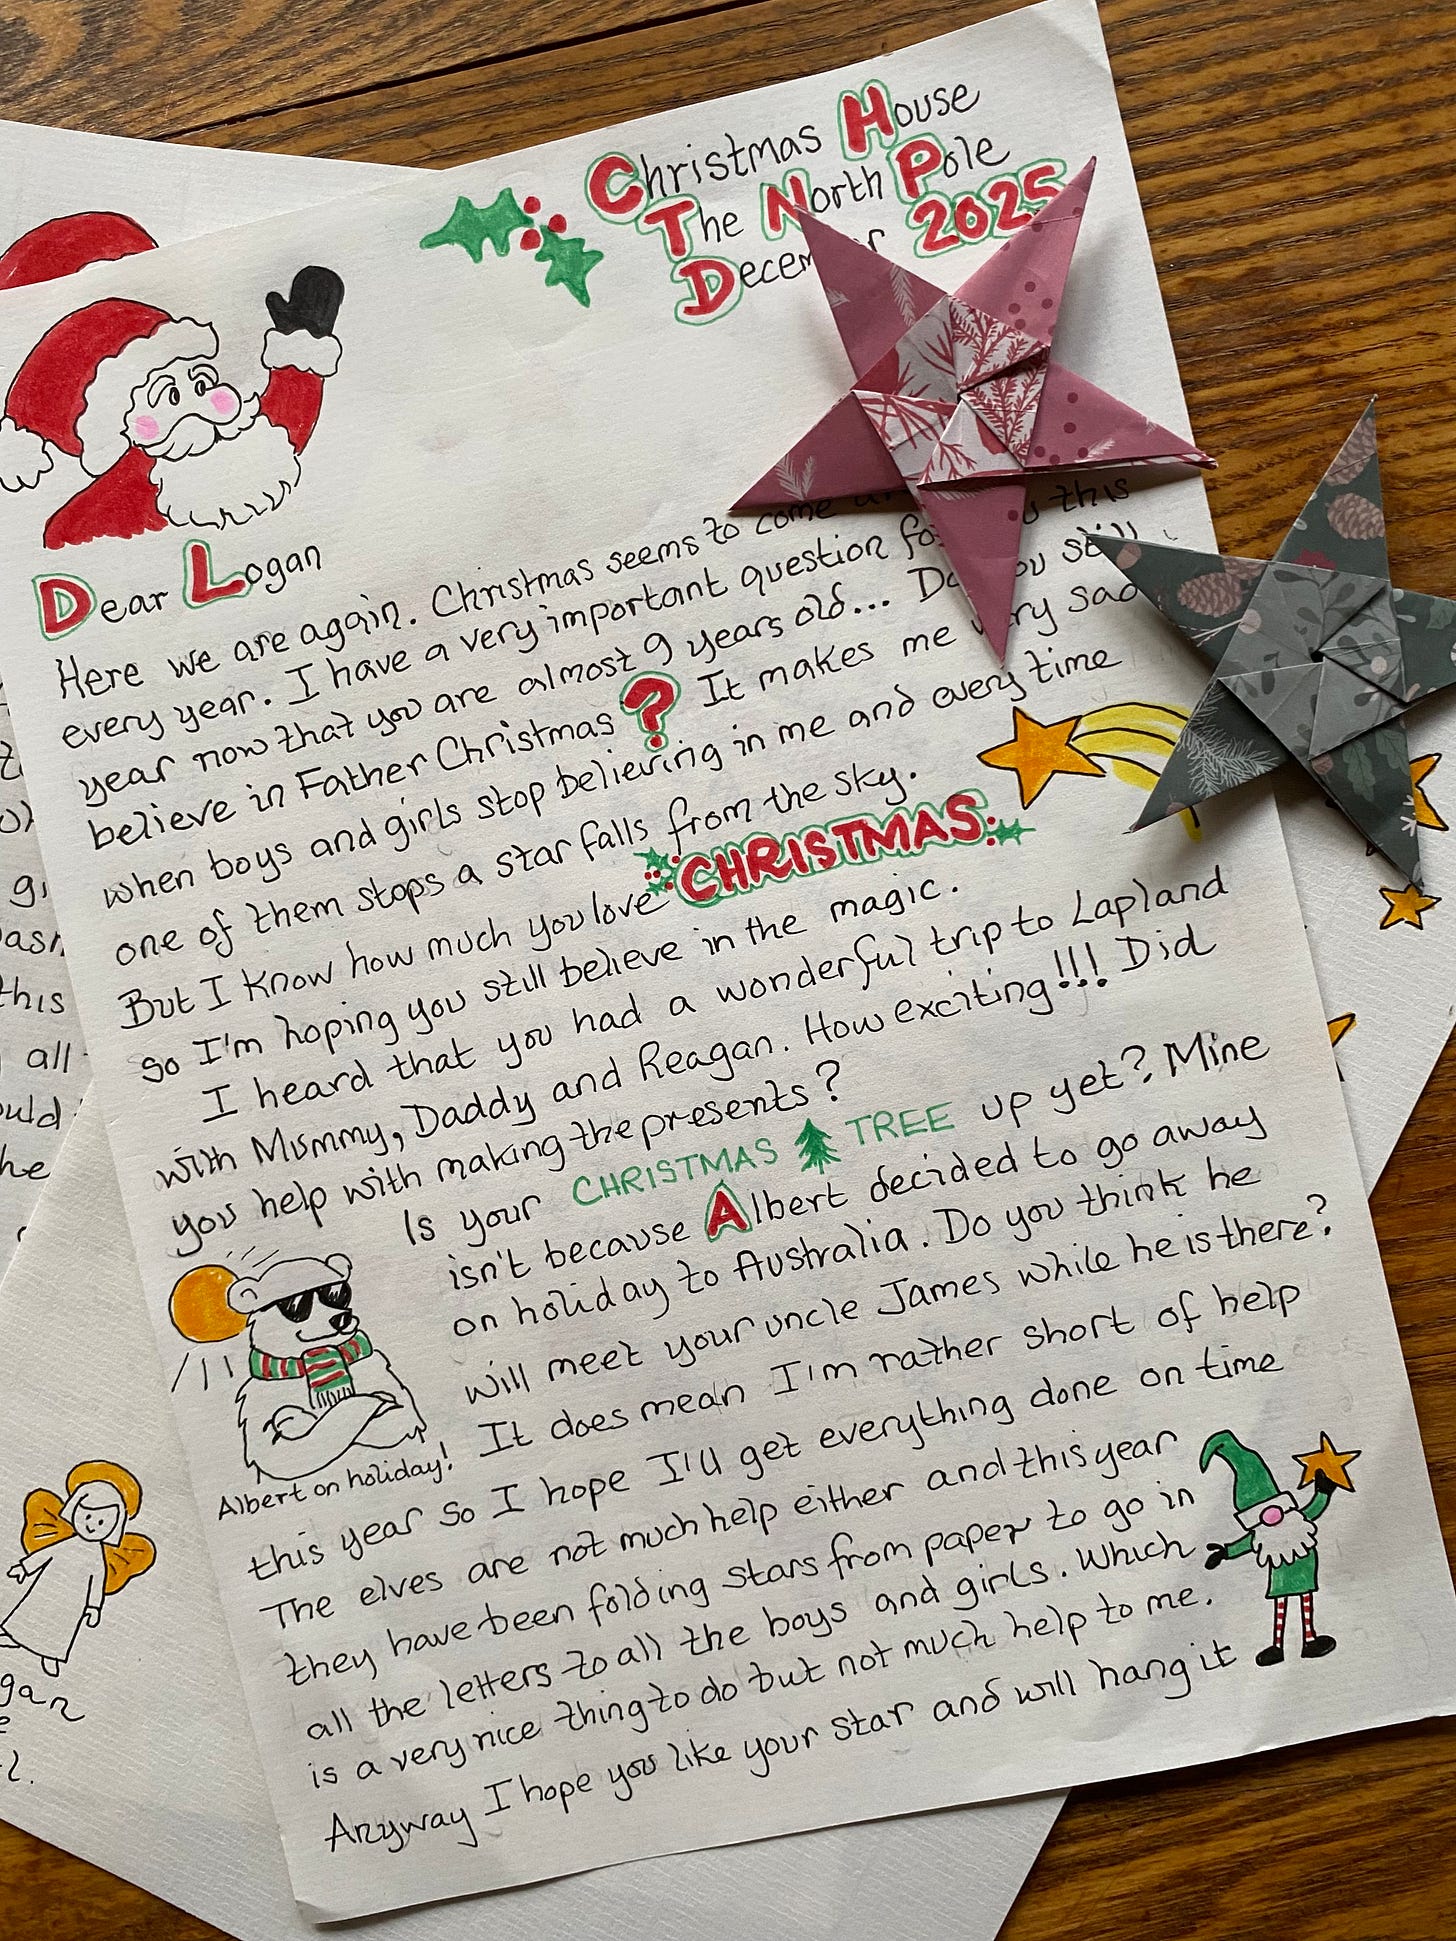 Christmas House
The North Pole
2025
Dear Logan
Here we are again. Christmas seems to come
every year. I have a very important question this
year now that you are almost 9 years old... you still
believe in Father Christmas? It makes me sad
when boys and girls stop believing in me and every time
one of them stops a star falls from the sky.
But I know how much you love CHRISTMAS.
so I'm hoping you still believe in the magic.
I heard that you had a wonderful trip to Lapland
with Mummy, Daddy and Reagan. How exciting!!! Did
you help with making the presents?
Is your CHRISTMAS TREE up yet? Mine
isn't because Albert decided to go away
on holiday to Australia. Do you think he
will meet your uncle James while he is there?
It does mean I'm rather short of help
Albert on holiday!
this year so I hope I'll get everything done on time
The elves are not much help either and this year
they have been folding stars from paper to go in
all the letters to all the boys and girls. Which
is a very nice thing to do but not much help to me.
Anyway I hope you like your star and will hang it
this
all